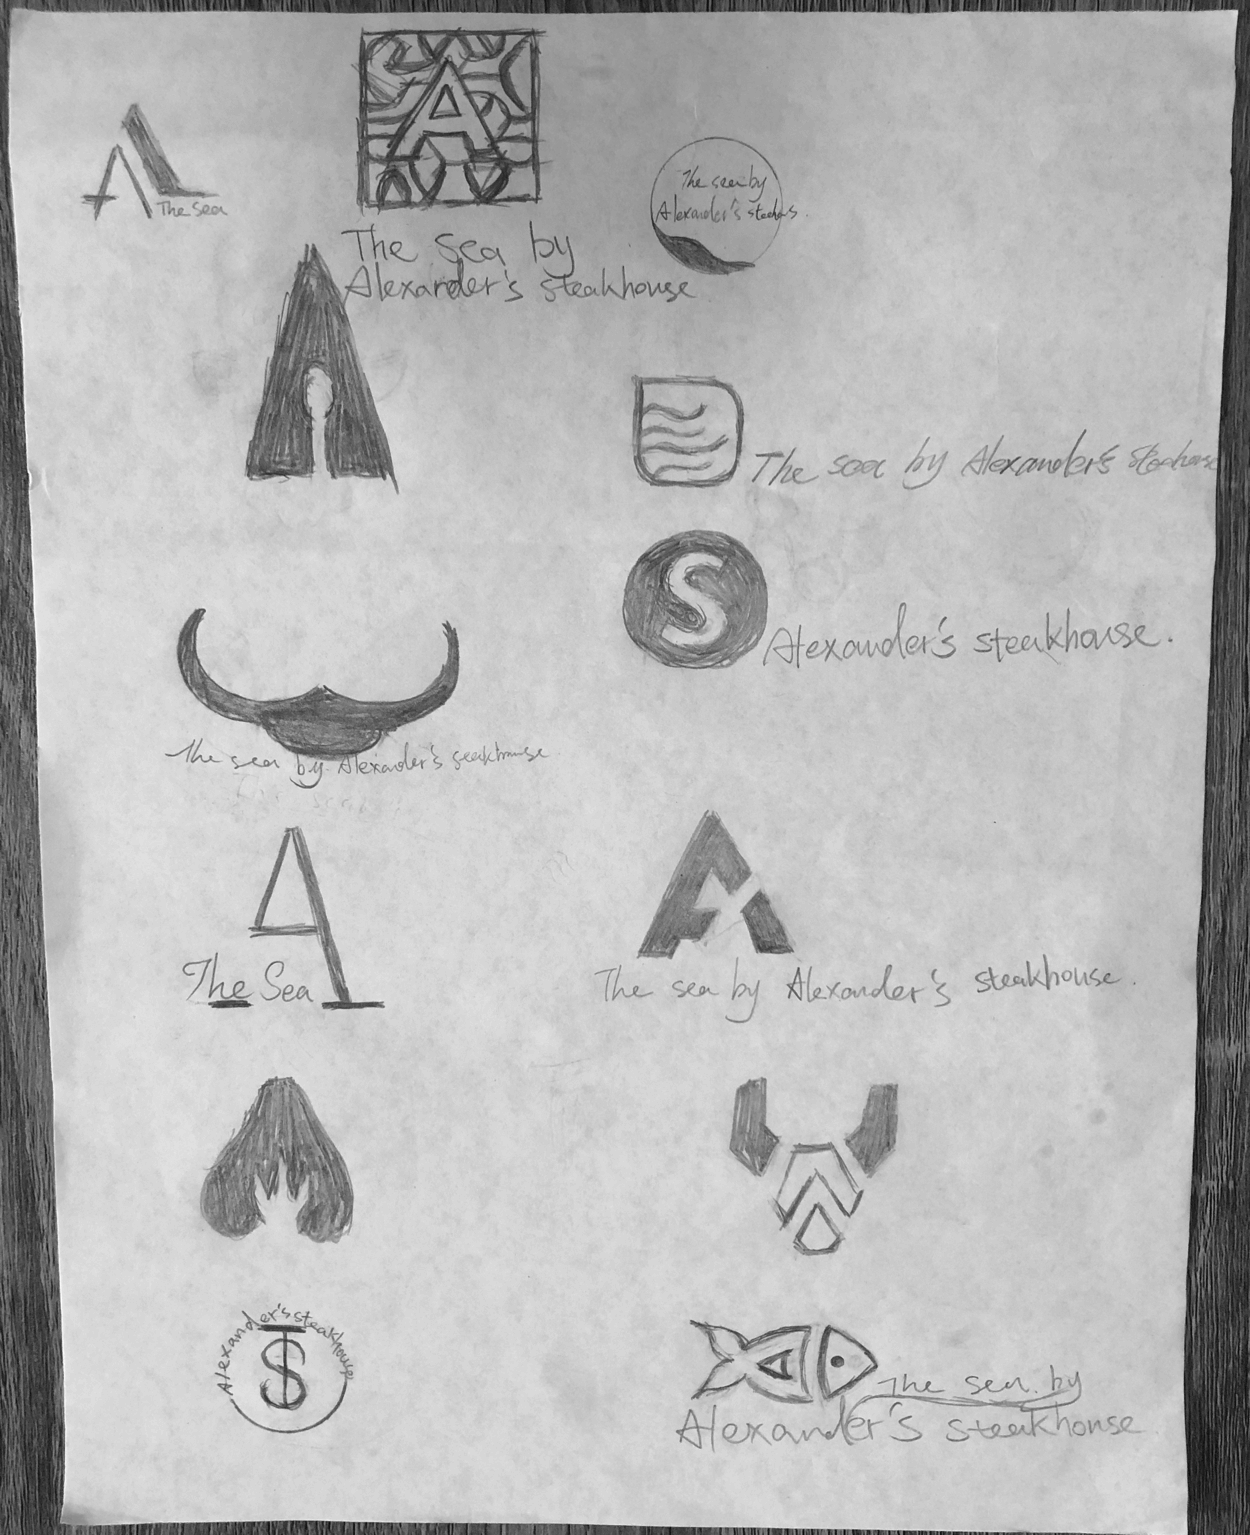 A
The sea
A
The sea by
Alexander's steakhouse
The sea by
Alexander's
The sea by Alexander's
S
Alexander's steakhouse.
The sea by Alexander's seakhouse
A
The Sea
A
The sea by Alexander's steakhouse.
Alexander's steakhouse
TS
A
The sea by
Alexander's steakhouse